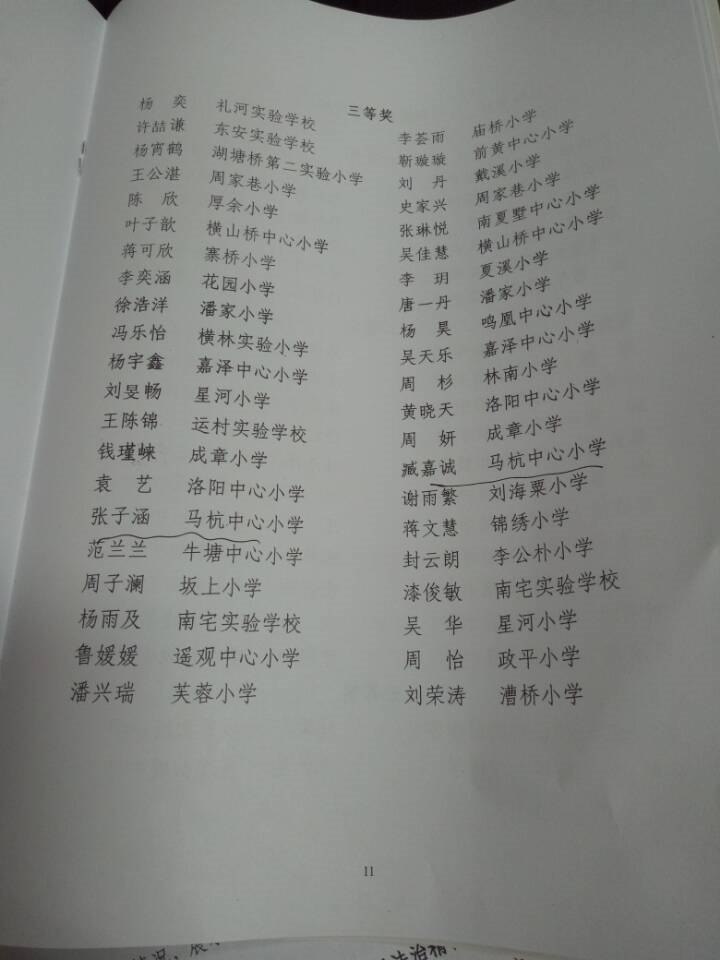 三等奖
杨 奕 礼河实验学校
许喆谦 东安实验学校
杨宵鹤 湖塘桥第二实验小学
王公湛 周家巷小学
陈 欣 厚余小学
叶子歆 横山桥中心小学
蒋可欣 寨桥小学
李奕涵 花园小学
徐浩洋 潘家小学
冯乐怡 横林实验小学
杨宇鑫 嘉泽中心小学
刘旻畅 星河小学
王陈锦 运村实验学校
钱瑾崃 成章小学
袁 艺 洛阳中心小学
张子涵 马杭中心小学
范兰兰 牛塘中心小学
周子澜 坂上小学
杨雨及 南宅实验学校
鲁媛媛 遥观中心小学
潘兴瑞 芙蓉小学
李荟雨 庙桥小学
靳璇璇 前黄中心小学
刘 丹 戴溪小学
史家兴 周家巷小学
张琳悦 南夏墅中心小学
吴佳慧 横山桥中心小学
李 玥 夏溪小学
唐一丹 潘家小学
杨 昊 鸣凰中心小学
吴天乐 嘉泽中心小学
周 杉 林南小学
黄晓天 洛阳中心小学
周 妍 成章小学
臧嘉诚 马杭中心小学
谢雨繁 刘海粟小学
蒋文慧 锦绣小学
封云朗 李公朴小学
漆俊敏 南宅实验学校
吴 华 星河小学
周 怡 政平小学
刘荣涛 漕桥小学
11